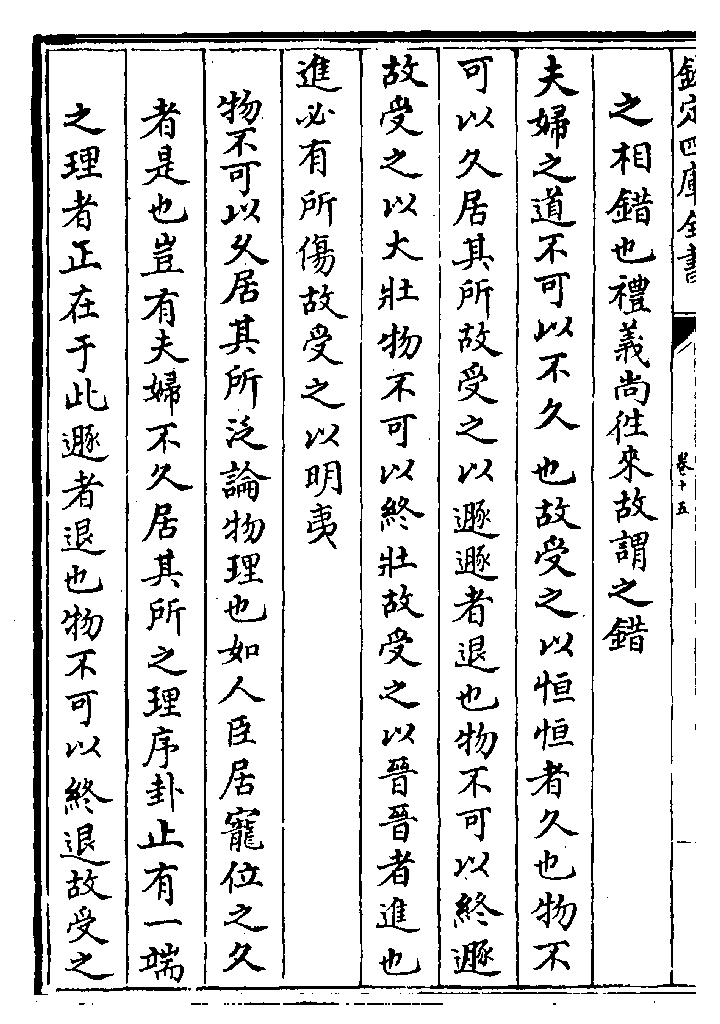 欽定四庫全書
卷十五
之相錯也禮義尚徃來故謂之錯
夫婦之道不可以不久也故受之以恒恒者久也物不
可以久居其所故受之以遯遯者退也物不可以終遯
故受之以大壯物不可以終壯故受之以晉晉者進也
進必有所傷故受之以明夷
物不可以久居其所泛論物理也如人臣居寵位之久
者是也豈有夫婦不久居其所之理序卦止有一端
之理者正在于此遯者退也物不可以終退故受之